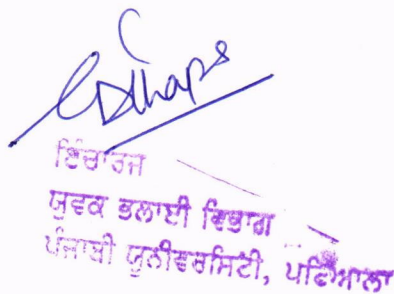 ਇੰਚਾਰਜ
ਯੁਵਕ ਭਲਾਈ ਵਿਭਾਗ
ਪੰਜਾਬੀ ਯੂਨੀਵਰਸਿਟੀ, ਪਟਿਆਲਾ